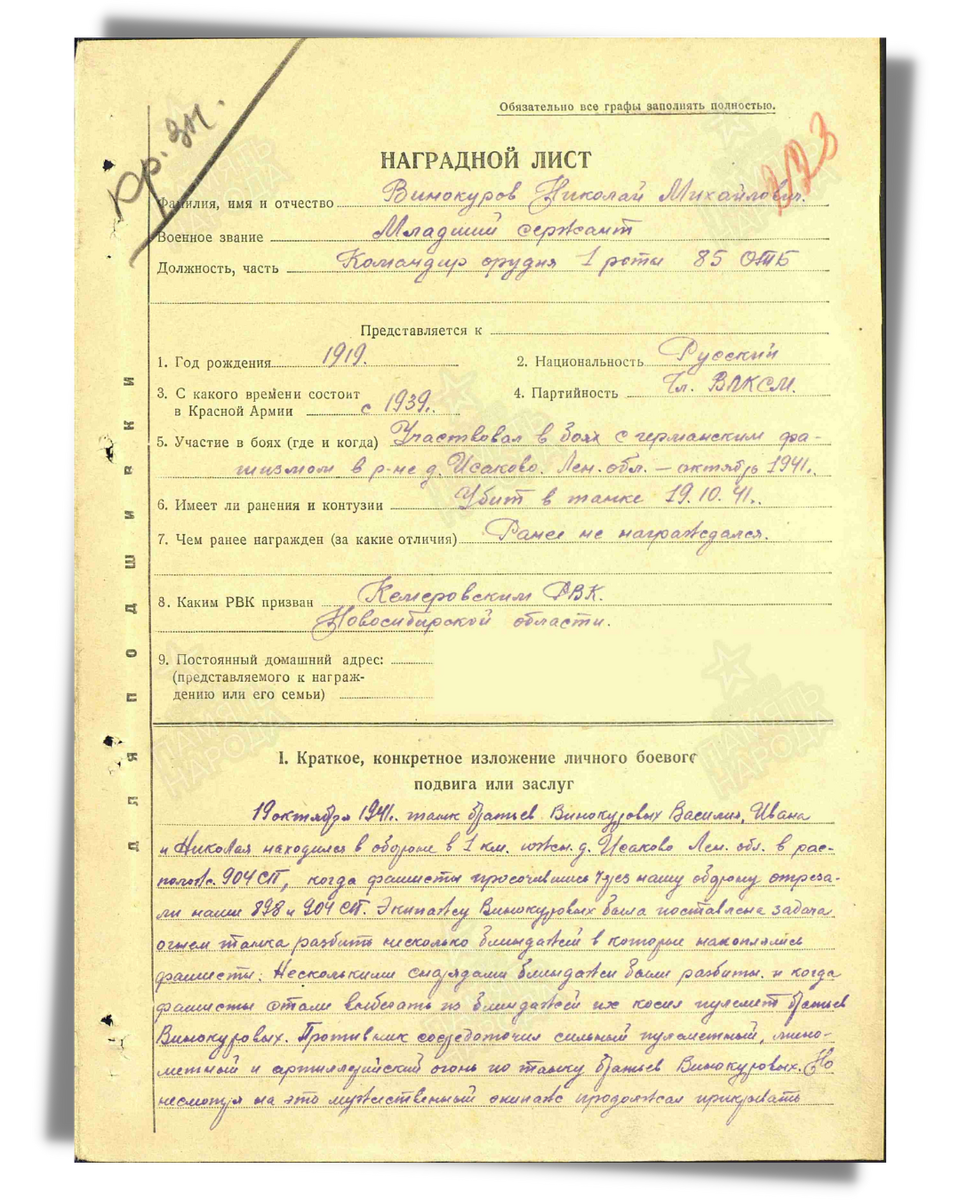 Обязательно все графы заполнять полностью.
Кр. зн.
223
НАГРАДНОЙ ЛИСТ
Фамилия, имя и отчество Винокуров Николай Михайлович.
Военное звание Младший сержант
Должность, часть Командир орудия 1 роты 85 ОТБ
Представляется к
1. Год рождения 1919.
2. Национальность Русский
3. С какого времени состоит
в Красной Армии с 1939.
4. Партийность Чл. ВЛКСМ.
5. Участие в боях (где и когда) Участвовал в боях с германским фа-
шизмом в р-не д. Исаково. Лен. обл. – октябрь 1941.
6. Имеет ли ранения и контузии Убит в танке 19.10.41.
7. Чем ранее награжден (за какие отличия) Ранее не награждался.
8. Каким РВК призван Кемеровским РВК.
Новосибирской области.
9. Постоянный домашний адрес:
(представляемого к награж-
дению или его семьи)
ДЛЯ ПОДШИВКИ
1. Краткое, конкретное изложение личного боевого
подвига или заслуг
19 октября 1941. танк братьев Винокуровых Василия, Ивана
и Николая находился в обороне в 1 км. южн. д. Исаково Лен. обл. в рас-
полож. 904 СП, когда фашисты просочившись через нашу оборону отреза-
ли наши 898 и 904 СП. Экипажу Винокуровых была поставлена задача
огнем танка разбить несколько блиндажей в которые накоплялись
фашисты. Несколькими снарядами блиндажи были разбиты. и когда
фашисты стали выбегать из блиндажей их косил пулемет братьев
Винокуровых. Противник сосредоточил сильный пулеметный, мино-
метный и артиллерийский огонь по танку братьев Винокуровых. Но
несмотря на это мужественный экипаж продолжал прикрывать
ПАМЯТЬ НАРОДА